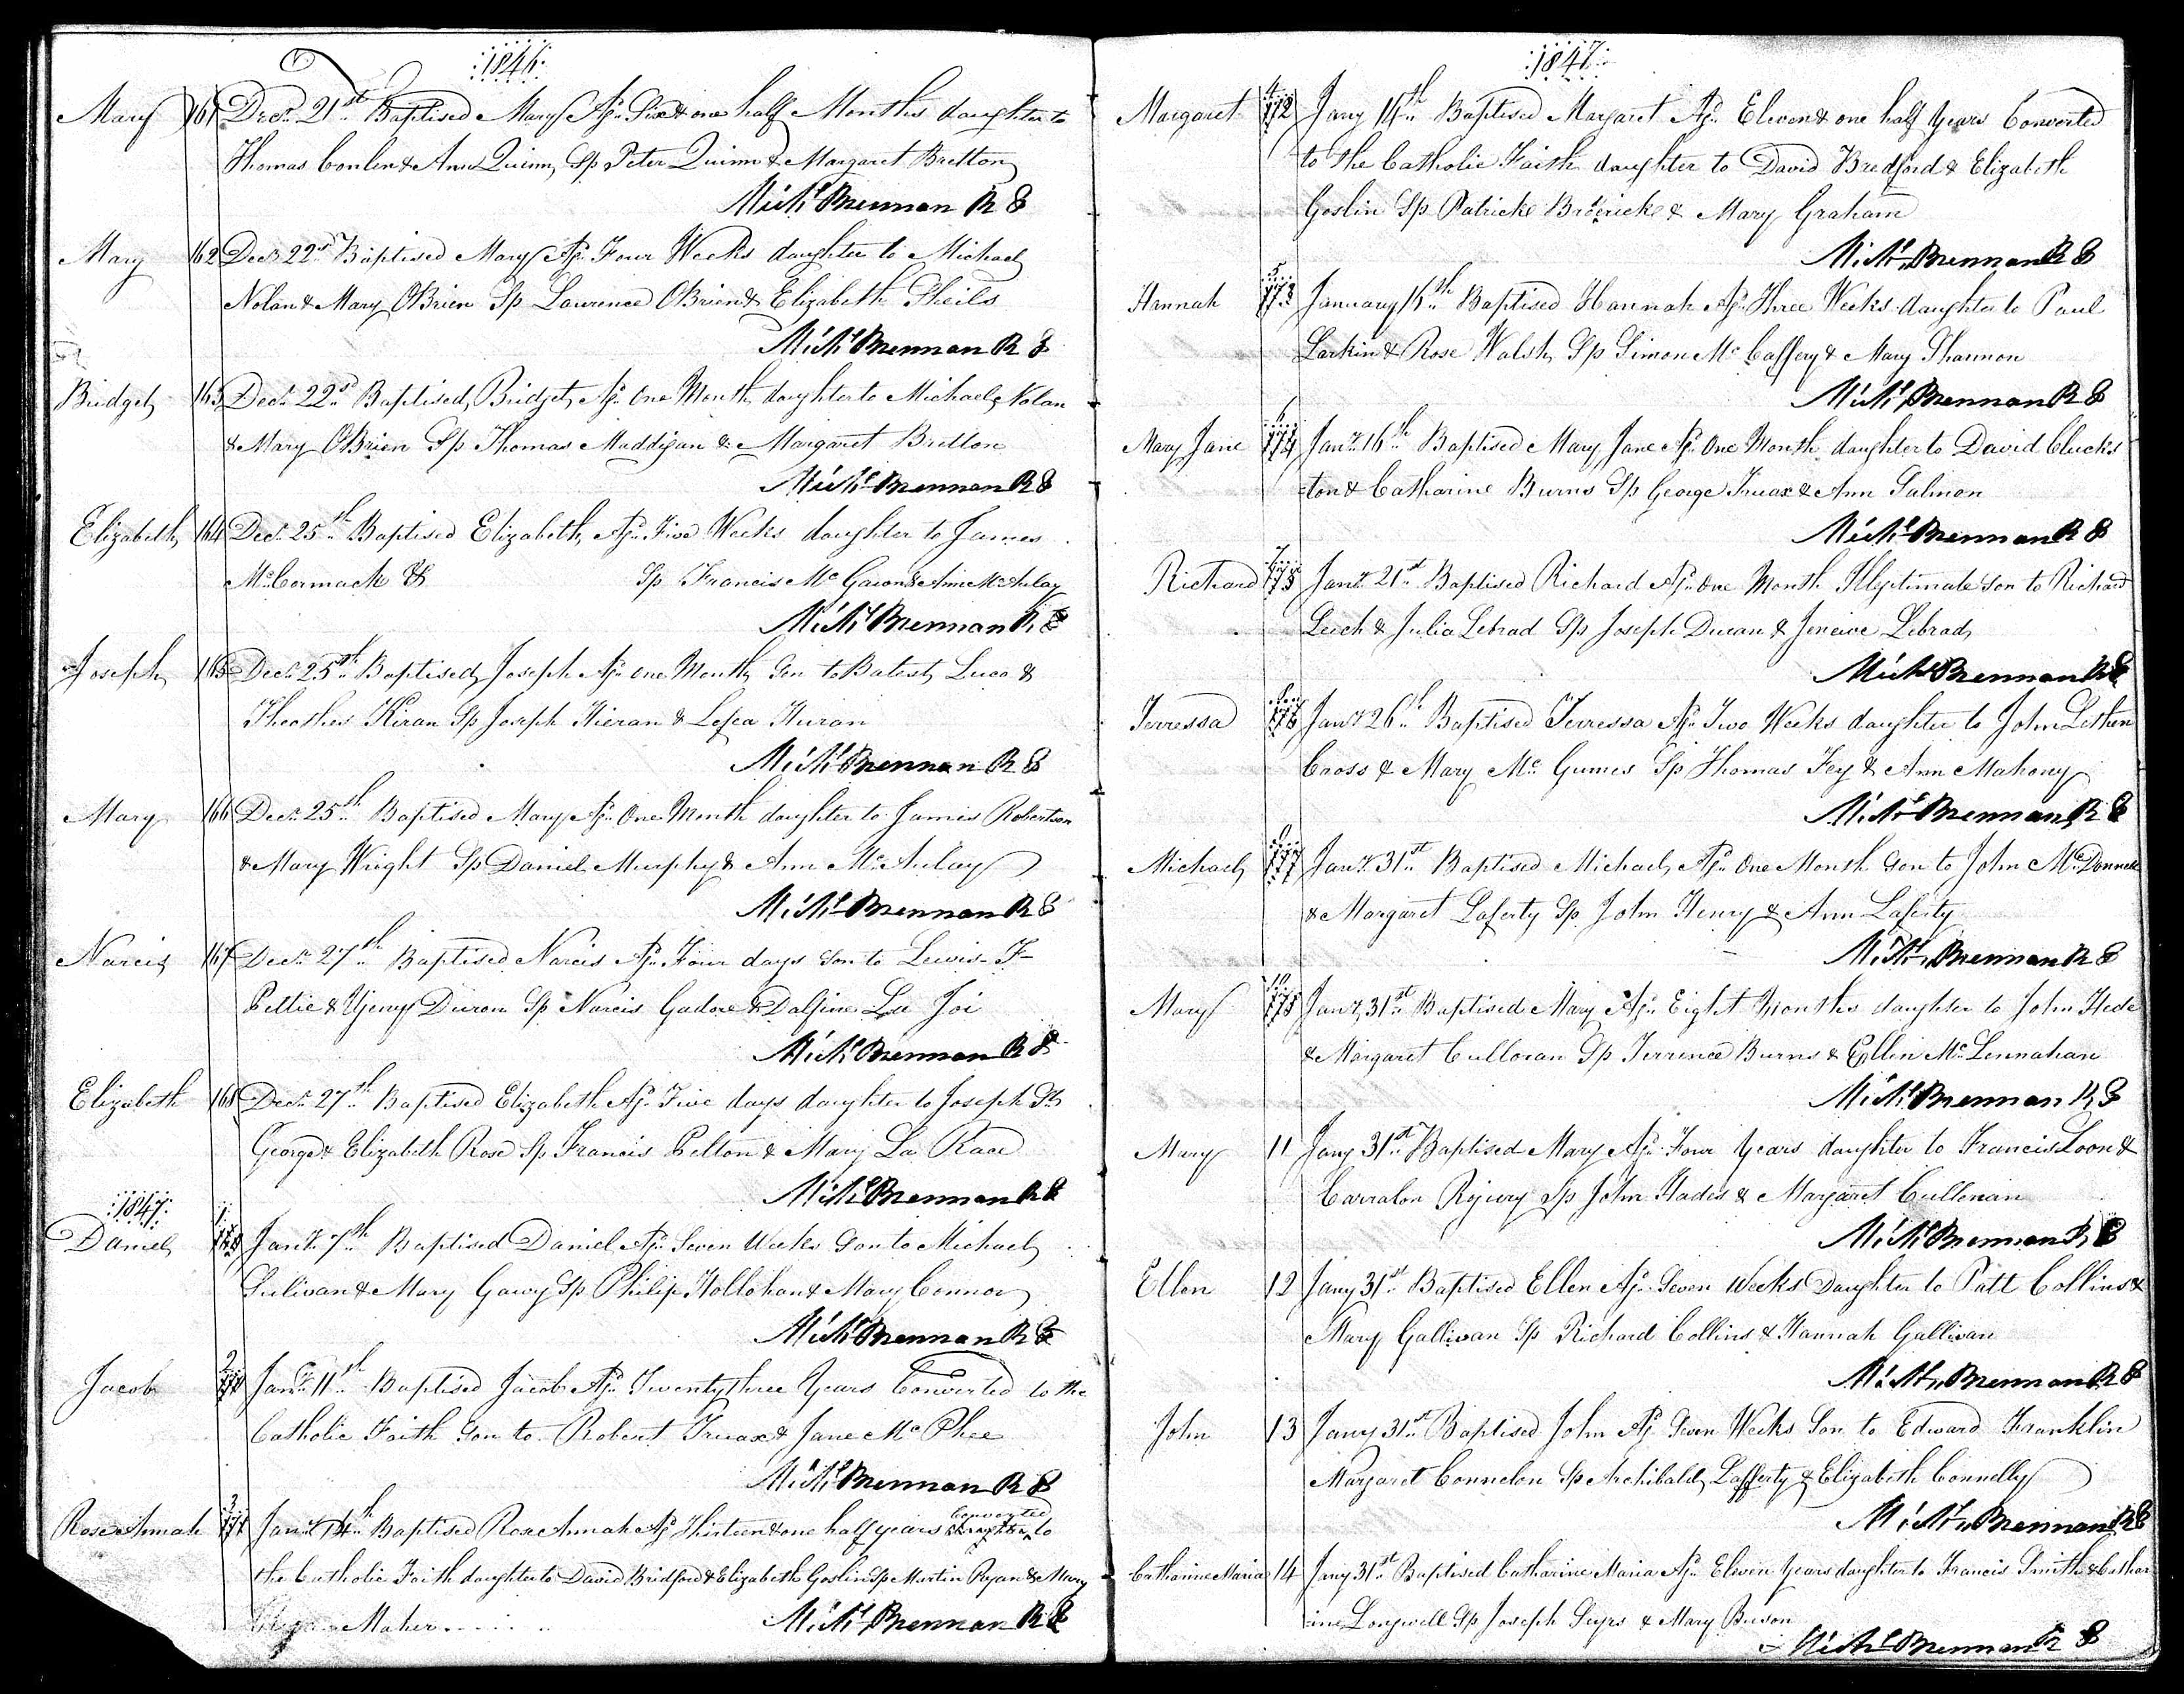 1846
Mary 161 Decr. 21st Baptised Mary Ag. Six & one half Months daughter to
Thomas Conlen & Ann Quinn Sp Peter Quinn & Margaret Bretton
Michl Brennan R C
Mary 162 Decr. 22nd Baptised Mary Ag. Four Weeks daughter to Michael
Nolan & Mary OBrien Sp Laurence OBrien & Elizabeth Sheils
Michl Brennan R C
Bridget 163 Decr. 22nd Baptised Bridget Ag. One Month daughter to Michael Nolan
& Mary OBrien Sp Thomas Maddigan & Margaret Bretton
Michl Brennan R C
Elizabeth 164 Decr. 25th Baptised Elizabeth Ag. Five Weeks daughter to James
McCormack & Sp Francis McGawn & Ann McAulay
Michl Brennan R C
Joseph 165 Decr. 25th Baptised Joseph Ag. One Month Son to Batest Luca &
Kiran Sp Joseph Kieran & Huran
Michl Brennan R C
Mary 166 Decr. 25th Baptised Mary Ag. One Month daughter to James Robertson
& Mary Wright Sp Daniel Murphy & Ann McAulay
Michl Brennan R C
Narcis 167 Decr. 27th Baptised Narcis Ag. Four days Son to Lewis F
Pettie & Duron Sp Narcis Gadore & Dalfine La Joi
Michl Brennan R C
Elizabeth 168 Decr. 27th Baptised Elizabeth Ag. Five days daughter to Joseph St
George & Elizabeth Rose Sp Francis Pelton & Mary La Race
Michl Brennan R C
1847
Daniel 1 Jany. 7th Baptised Daniel Ag. Seven Weeks Son to Michael
Sulivan & Mary Gawy Sp Philip Hollohan & Mary Connor
Michl Brennan R C
Jacob 2 Jany. 11th Baptised Jacob Ag. Twenty three Years Converted to the
Catholic Faith Son to Robert Truax & Jane McPhee
Michl Brennan R C
Rose Annah 3 171 Jany. 14th Baptised Rose Annah Ag. Thirteen & one half years Converted to
the Catholic Faith daughter to David Bridford & Elizabeth Goslin Sp Martin Ryan & Mary
Maher
Michl Brennan R C
1847
Margaret 4 172 Jany 14th Baptised Margaret Ag. Eleven & one half Years Converted
to the Catholic Faith daughter to David Bredford & Elizabeth
Goslin Sp Patricke Brodericke & Mary Graham
Michl Brennan R C
Hannah 5 173 January 15th Baptised Hannah Ag. Three Weeks daughter to Paul
Larkin & Rose Walsh Sp Simon McCaffery & Mary Shannon
Michl Brennan R C
Mary Jane 6 174 Jany. 16th Baptised Mary Jane Ag. One Month daughter to David Clucks
=ton & Catharine Burns Sp George Truax & Ann Salmon
Michl Brennan R C
Richard 7 175 Jany. 21st Baptised Richard Ag. One Month Illegtimate Son to Richard
Leech & Julia Lebrad Sp Joseph Duran & Jeneive Lebrad
Michl Brennan R C
Terressa 8 176 Jany. 26th Baptised Terressa Ag. Two Weeks daughter to John Lethen
Cross & Mary McGumes Sp Thomas Fey & Ann Mahony
Michl Brennan R C
Michael 9 177 Jany. 31st Baptised Michael Ag. One Month Son to John McDonnell
& Margaret Laferty Sp John Henry & Ann Laferty
Michl Brennan R C
Mary 10 178 Jany. 31st Baptised Mary Ag. Eight Months daughter to John Hede
& Margaret Culloran Sp Terrence Burns & Ellen McLennahan
Michl Brennan R C
Mary 11 Jany 31st Baptised Mary Ag. Four Years daughter to Francis Loon &
Carralon Rejury Sp John Hades & Margaret Cullenan
Michl Brennan R C
Ellen 12 Jany 31st Baptised Ellen Ag. Seven Weeks Daughter to Patt Collins &
Mary Gallivan Sp Richard Collins & Hannah Gallivan
Michl Brennan R C
John 13 Jany 31st Baptised John Ag. Seven Weeks Son to Edward Franklin
Margaret Connelon Sp Archibald Lafferty & Elizabeth Connelly
Michl Brennan R C
Catharine Maria 14 Jany 31st Baptised Catharine Maria Ag. Eleven Years daughter to Francis Smith & Cathar
=ine Longwell Sp Joseph Seyrs & Mary Buson
Michl Brennan R C